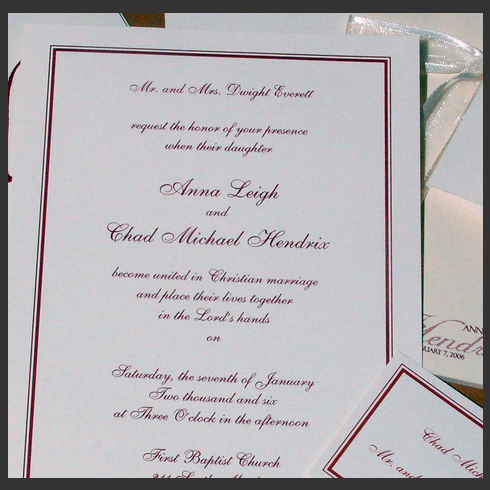 Mr. and Mrs. Dwight Everett
request the honor of your presence
when their daughter
Anna Leigh
and
Chad Michael Hendrix
become united in Christian marriage
and place their lives together
in the Lord's hands
on
Saturday, the seventh of January
Two thousand and six
at Three O'clock in the afternoon
First Baptist Church
ANN
Hendr
UARY 7, 2006
Chad Mich
Mr. and